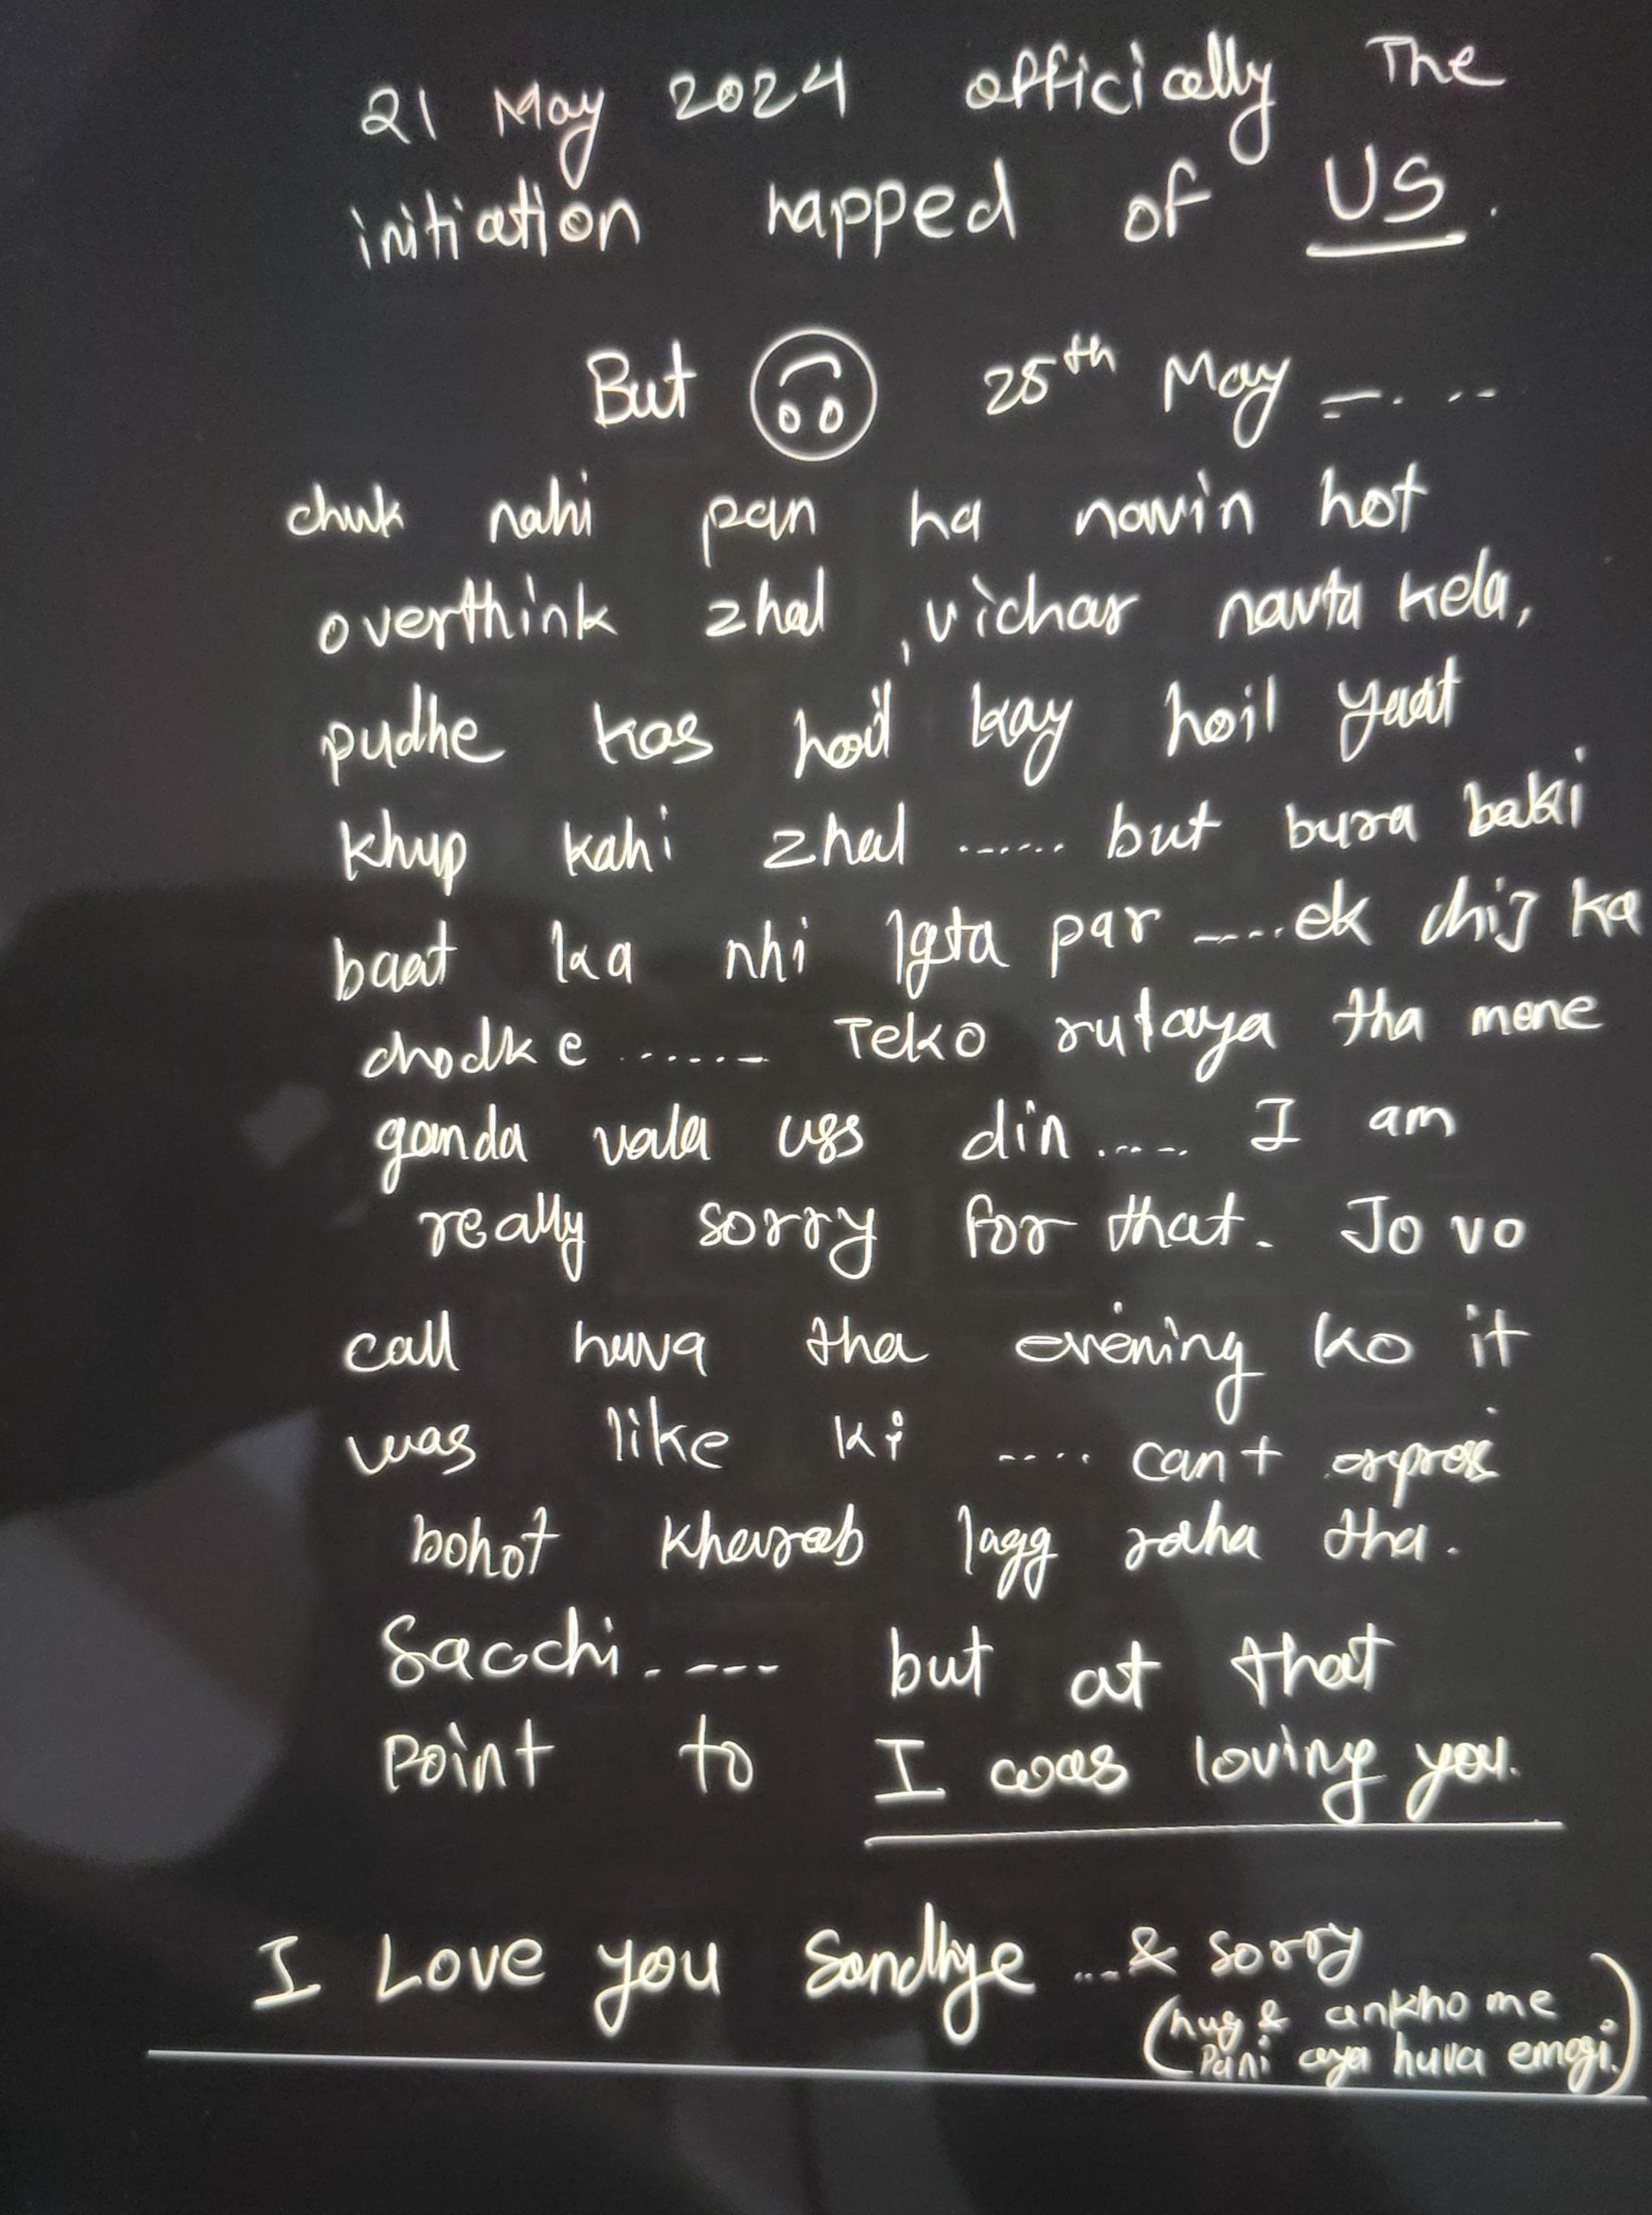 21 May 2024 officially The
initiation happed of US.
But 25th May -....
chuk nahi pan ha navin hot
overthink zhal , vichar navta kela,
pudhe kas hoil kay hoil yaat
khup kahi zhal ...... but bura baki
baat ka nhi lgta par .....ek chij ka
chodke ...... Teko rulaya tha mene
ganda vala uss din..... I am
really sorry for that. Jo vo
call huva tha evening ko it
was like ki .... can't
bohot kharab lagg raha tha.
Sacchi.---- but at that
Point to I was loving you.
I Love you Sandhye ...& sorry
(hug & ankho me
Pani aya huva emogi.)